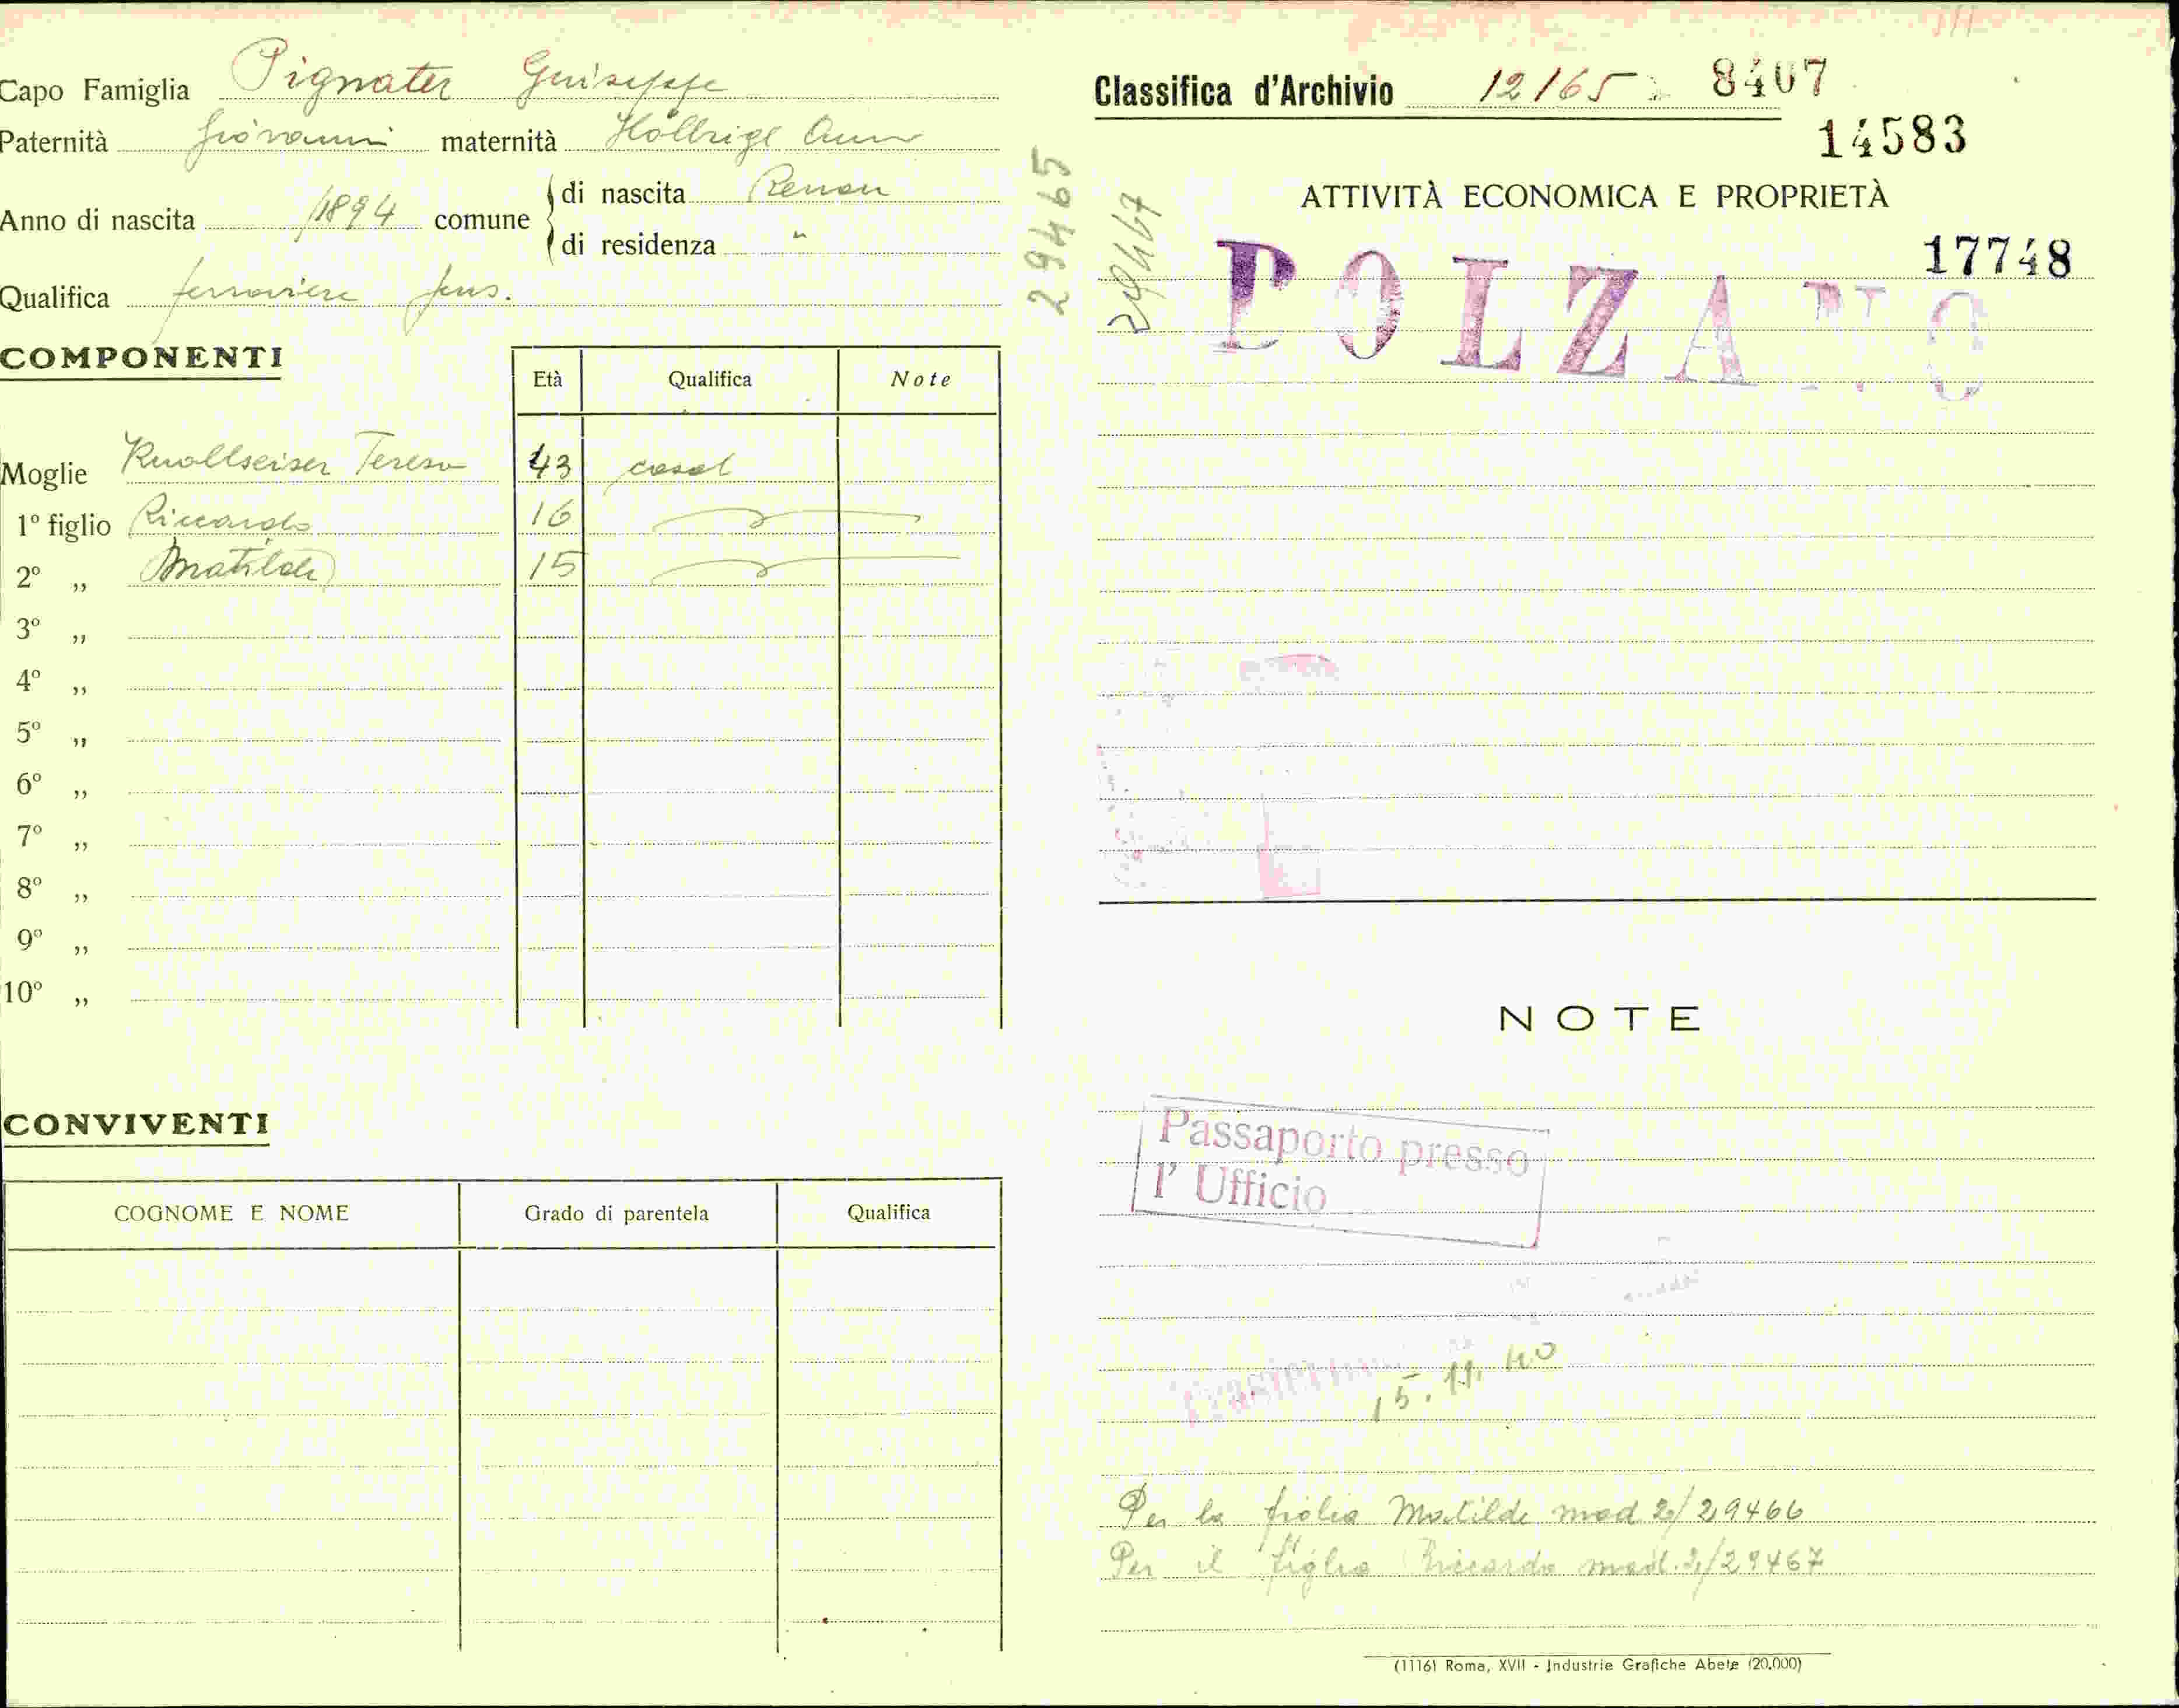 Capo Famiglia Pignater Guiseppe
Paternità Giovanni maternità Höllrigl Ann
Anno di nascita 1894 comune di nascita Renon
di residenza "
Qualifica ferroviere pens.
COMPONENTI
Età Qualifica Note
Moglie Knollseiser Teresa 43 casal
1º figlio Riccardo 16
2º „ Matilde 15
3º „
4º „
5º „
6º „
7º „
8º „
9º „
10º „
CONVIVENTI
COGNOME E NOME Grado di parentela Qualifica
29465
29467
Classifica d'Archivio 12/65 8407
14583
ATTIVITÀ ECONOMICA E PROPRIETÀ
17748
BOLZANO
NOTE
Passaporto presso
l' Ufficio
15.11.40
Per la figlia Matilde mod 2/29466
Per il figlio Riccardo mod. 2/29467
(1116) Roma, XVII - Industrie Grafiche Abete (20.000)